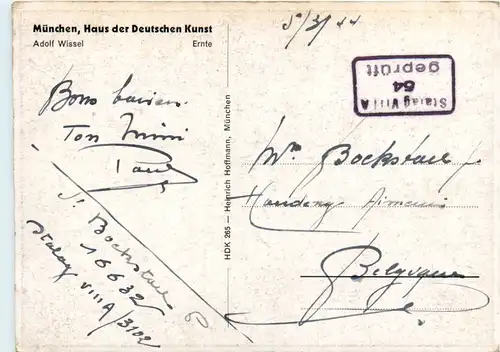 München, Haus der Deutschen Kunst
Adolf Wissel Ernte
5/3/44
Stalag VIII A
54
geprüft
Bons baisers
Ton Mimi
Paul
HDK 265 — Heinrich Hoffmann, München
Mme Bockstael
Belgique
Bockstael P
16632
Stalag VIII A/3102